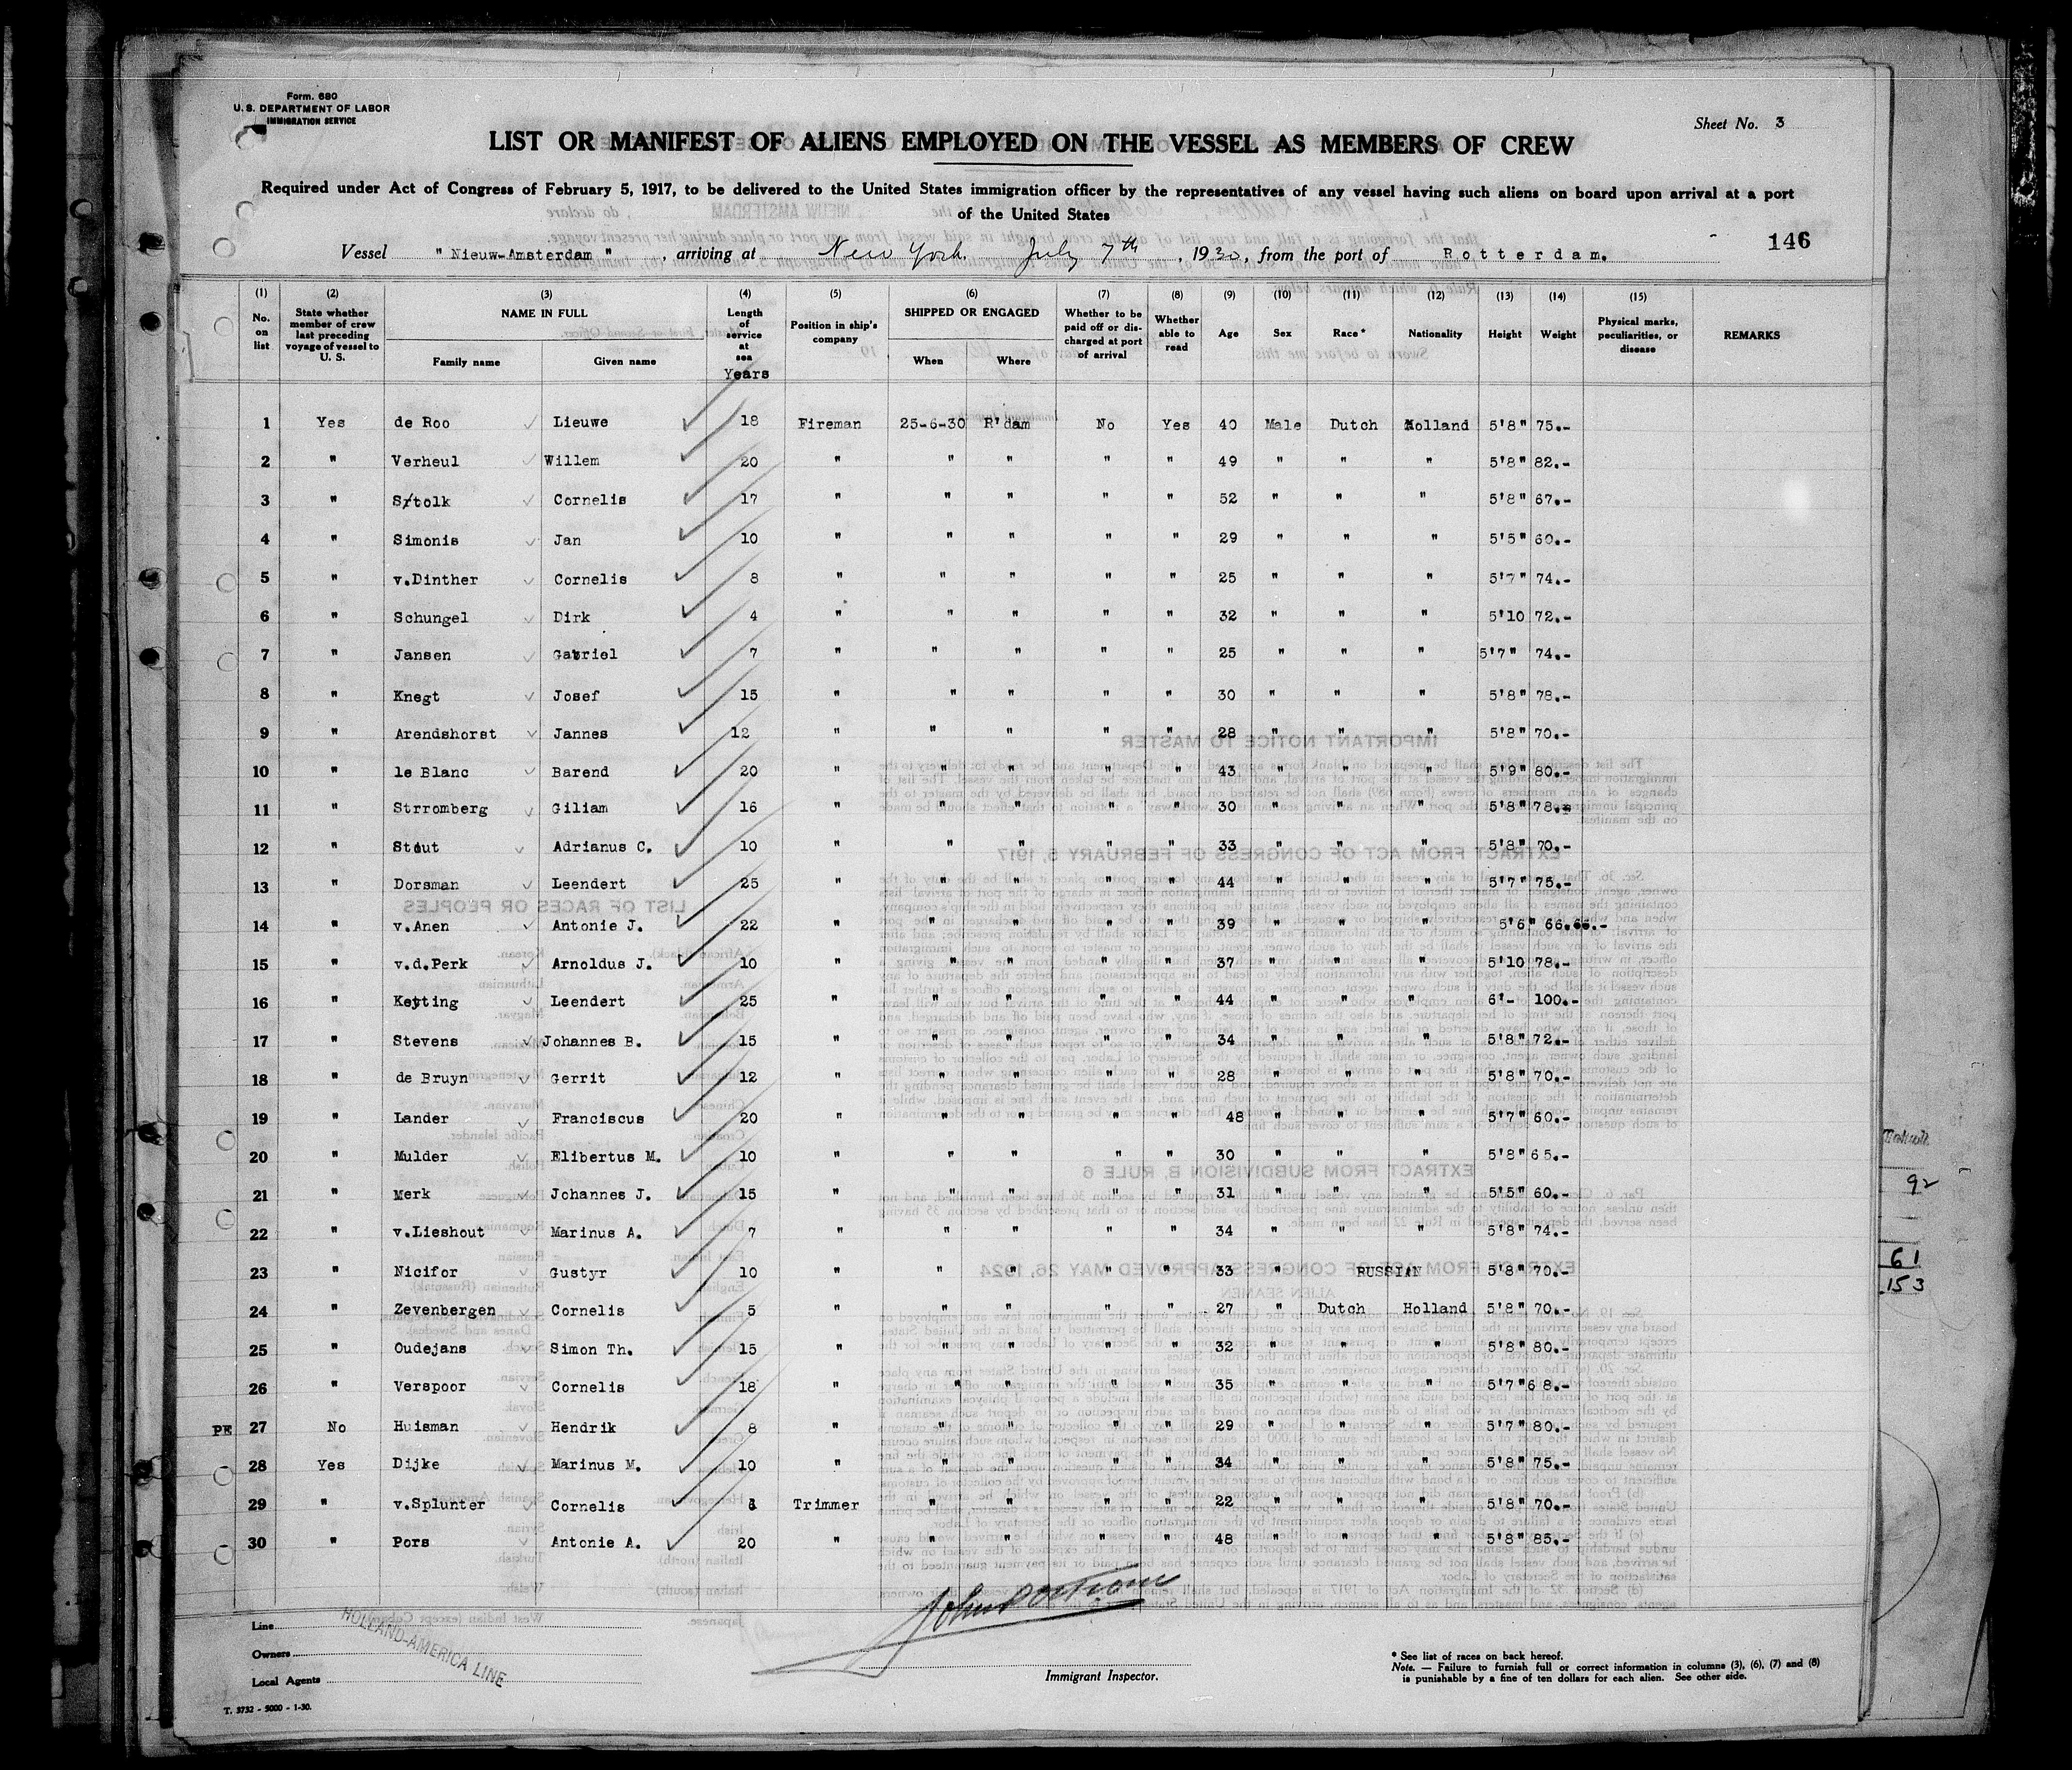 Form. 680
U. S. DEPARTMENT OF LABOR
IMMIGRATION SERVICE
Sheet No. 3
LIST OR MANIFEST OF ALIENS EMPLOYED ON THE VESSEL AS MEMBERS OF CREW
Required under Act of Congress of February 5, 1917, to be delivered to the United States immigration officer by the representatives of any vessel having such aliens on board upon arrival at a port
of the United States
146
Vessel " Nieuw-Amsterdam ", arriving at New York. July 7th, 1930, from the port of Rotterdam.
(1) No. on list (2) State whether member of crew last preceding voyage of vessel to U. S. (3) NAME IN FULL Family name Given name (4) Length of service at sea Years (5) Position in ship's company (6) SHIPPED OR ENGAGED When Where (7) Whether to be paid off or discharged at port of arrival (8) Whether able to read (9) Age (10) Sex (11) Race* (12) Nationality (13) Height (14) Weight (15) Physical marks, peculiarities, or disease REMARKS
1 Yes de Roo Lieuwe 18 Fireman 25-6-30 R'dam No Yes 40 Male Dutch Holland 5'8" 75.-
2 " Verheul Willem 20 " " " " " 49 " " " 5'8" 82.-
3 " S/tolk Cornelis 17 " " " " " 52 " " " 5'8" 67.-
4 " Simonis Jan 10 " " " " " 29 " " " 5'5" 60.-
5 " v.Dinther Cornelis 8 " " " " " 25 " " " 5'7" 74.-
6 " Schungel Dirk 4 " " " " " 32 " " " 5'10 72.-
7 " Jansen Gabriel 7 " " " " " 25 " " " 5'7" 74.-
8 " Knegt Josef 15 " " " " " 30 " " " 5'8" 78.-
9 " Arendshorst Jannes 12 " " " " " 28 " " " 5'8" 70.-
10 " le Blanc Barend 20 " " " " " 43 " " " 5'9" 80.-
11 " Strromberg Giliam 16 " " " " " 30 " " " 5'8" 78.-
12 " Stout Adrianus C. 10 " " " " " 33 " " " 5'8" 70.-
13 " Dorsman Leendert 25 " " " " " 44 " " " 5'7" 75.-
14 " v.Anen Antonie J. 22 " " " " " 39 " " " 5'6" 66.66.-
15 " v.d.Perk Arnoldus J. 10 " " " " " 37 " " " 5'10 78.-
16 " Keyting Leendert 25 " " " " " 44 " " " 6'- 100.-
17 " Stevens Johannes B. 15 " " " " " 34 " " " 5'8" 72.-
18 " de Bruyn Gerrit 12 " " " " " 28 " " " 5'8" 70.-
19 " Lander Franciscus 20 " " " " " 48 " " " 5'7" 60.-
20 " Mulder Elibertus M. 10 " " " " " 30 " " " 5'8" 65.-
21 " Merk Johannes J. 15 " " " " " 31 " " " 5'5" 60.-
22 " v.Lieshout Marinus A. 7 " " " " " 34 " " " 5'8" 74.-
23 " Nicifor Gustyr 10 " " " " " 33 " RUSSIAN 5'8" 70.-
24 " Zevenbergen Cornelis 5 " " " " " 27 " Dutch Holland 5'8" 70.-
25 " Oudejans Simon Th. 15 " " " " " 32 " " " 5'8" 80.-
26 " Verspoor Cornelis 18 " " " " " 35 " " " 5'7" 68.-
PE 27 No Huisman Hendrik 8 " " " " " 29 " " " 5'7" 80.-
28 Yes Dijke Marinus M. 10 " " " " " 34 " " " 5'8" 75.-
29 " v.Splunter Cornelis Trimmer " " " " 22 " " " 5'8" 70.-
30 " Pors Antonie A. 20 " " " " " 48 " " " 5'8" 85.-
92
61
153
Line
Owners
Local Agents
HOLLAND-AMERICA LINE
Immigrant Inspector.
* See list of races on back hereof.
Note. — Failure to furnish full or correct information in columns (3), (6), (7) and (8)
is punishable by a fine of ten dollars for each alien. See other side.
T. 3732 - 5000 - 1-30.